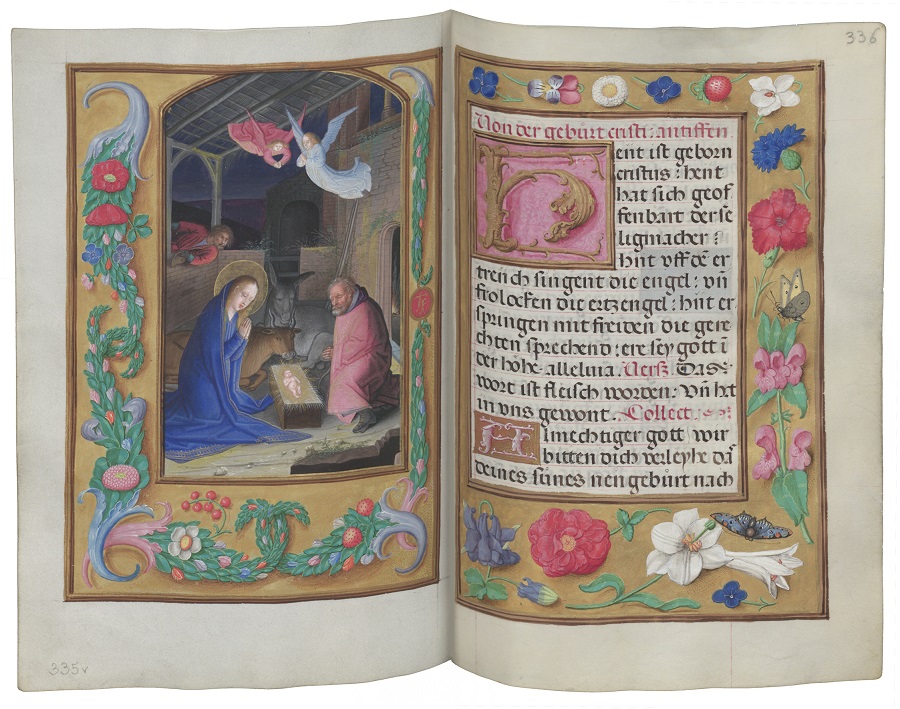 336
Von der geburt cristi: antiffen
Hent ist geborn
cristus: hent
hat sich geof
fenbart der se
ligmacher:
hint vff dē er
trench singent die engel: vn̄
frolocken die ertzengel: hint er
springen mit freiden die gere
chten sprechend: ere sey gott ī
der höhe. alleluia. Versz. Das
wort ist fleisch worden: Vn̄ hat
in vns gewont. Collect.
Almechtiger gott, wir
bitten dich verleyhe dā
deines sunes nen geburt nach
335v